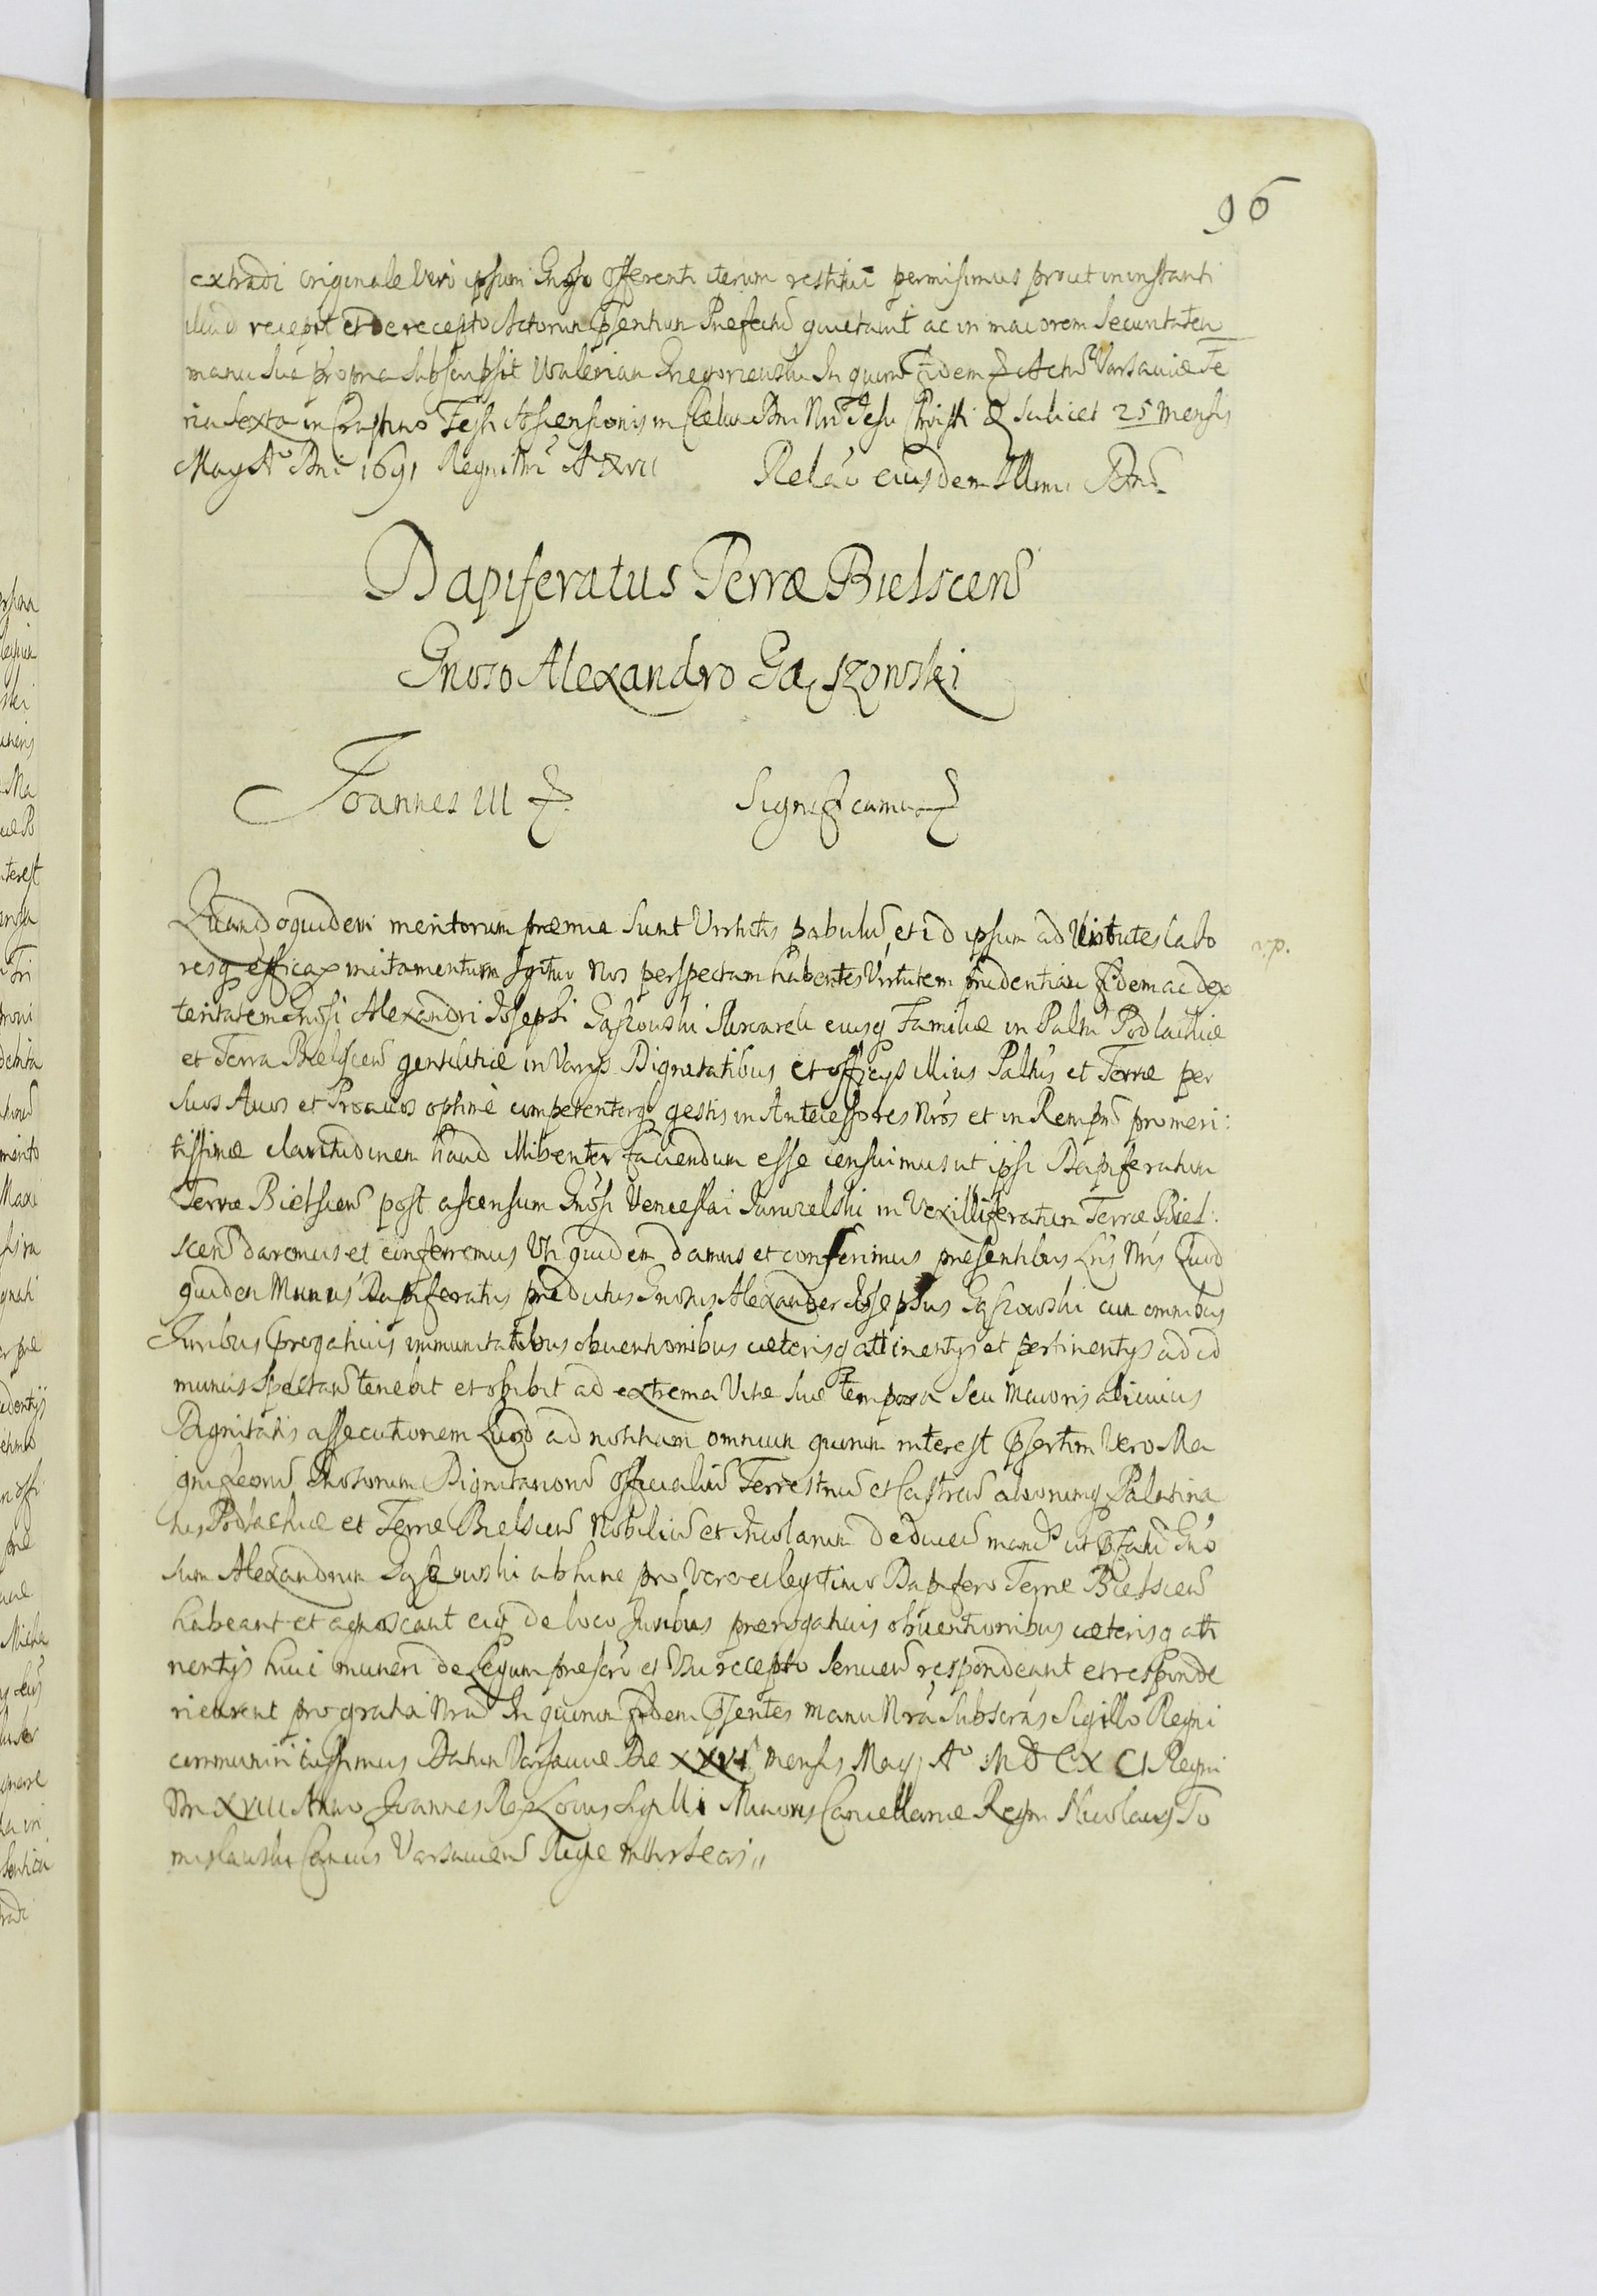 96
extradi originale vero ipsum Gnoso offerenti iterum restitui permisimus prout in instanti
illud recepit et de recepto Actorum Psentium Prefectū quietavit ac in maiorem Securitatem
manu sua propria subscripsit Walerian Gregoriewski In quorū fidem & Actū Varsaviæ Fe
ria Sexta in Crastino Festi Ascensionis in Cælum Dni Nri Jesu Christi & scilicet 25 Mensis
May Aº Dni 1691 Regni Nri Aº XVII Relaō eiusdem Illmi Dni
Dapiferatus Terræ Bielscen
Gnoso Alexandro Gąszowski
Joannes III & Significamus &
Quandoquidem meritorum præmia sunt Virtutis pabulū, et id ipsum ad Virtutes labo
resq efficax incitamentum Igitur Nos perspectam habentes Virtutem prudentiam fidem ac dex
teritatem Gnosi Alexandri Josephi Gąszowski eiusq Familiæ in Palatu Podlachiæ
et Terra Bielscen gentilitiæ in Varys Dignitatibus et officys illius Paltūs et Terræ per
suos Avos et Proavos optimè competenterq gestis in Antecessores Nros et in Rempub promeri:
tissimæ claritudinem haud illibenter faciendum esse censuimus ut ipsi Dapiferatum
Terræ Bielscen post ascensum Gnosi Venceslai in Vexilliferatum Terræ Biel:
scen daremus et conferremus Uti quidem damus et conferimus presentibus Lris Nris Quod
quidem Munus Dapiferatus predictus Gnosus Alexander Josephus Gąszowski cum omnibus
Juribus Prerogativis immunitatibus obventionibus cæterisq attinentys et pertinentys ad id
munus spectan tenebit et hebit ad extrema Vitæ suæ tempora seu maioris alicuius
Dignitatis assecutionem Quod ad notitiam omnium quorum interest Psertim vero Ma
gnificorū Gnosorum Dignitariorū officialiū Terrestriū et Castren aliorumq Palatina
tus Podlachiæ et Terræ Bielscen Nobiliū et Incolarum deducen mand ut Pfatū Gno
sum Alexandrum Gąszowski abhinc pro vero et legitimo Dapifero Terræ Bielscen
habeant et agnoscant eiq de loco Juribus prerogativis obventionibus cæterisq atti
nentys huic muneri de Legum prescrō et Usu recepto servien respondeant et responde
ri curent pro gratia Nra In quorum fidem Psentes manu Nra Subscras Sigillo Regni
communiri iussimus Datum Varsaviæ Die XXVI Mensis May Aº MDCXCI Regni
Nri XVIII Anno Joannes Rex Locus Sigilli Minoris Cancellariæ Regni Nicolaus To
misławski Canus Varsavien Regiæ mttis Secris